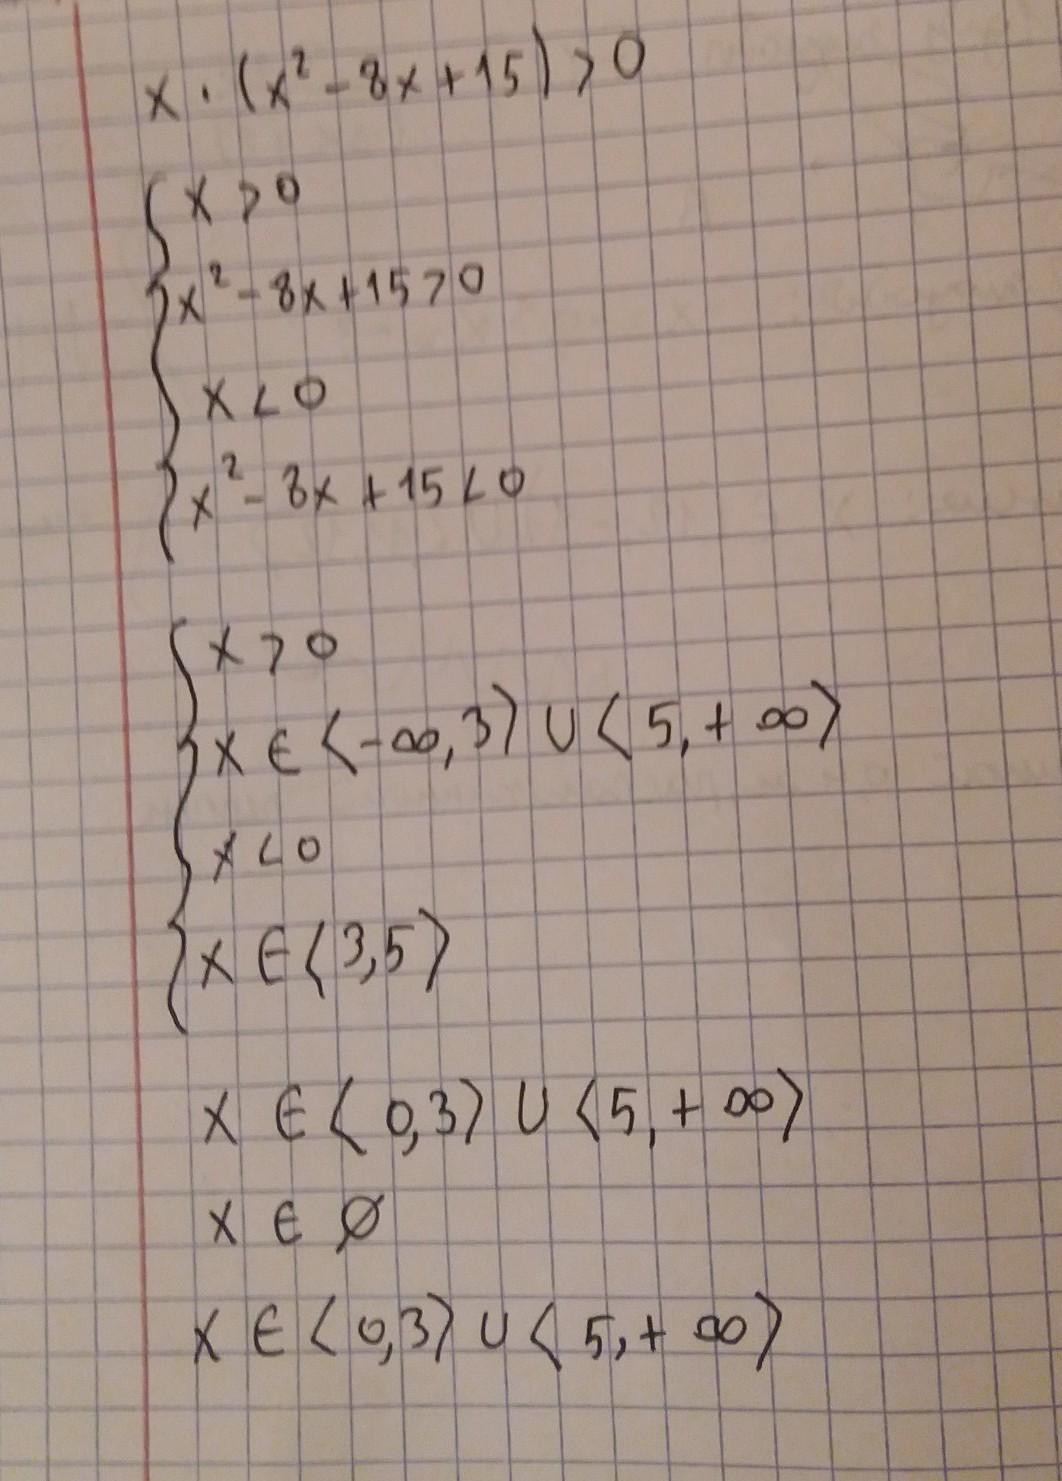 x · (x² - 8x + 15) > 0
x > 0
x² - 8x + 15 > 0
x < 0
x² - 8x + 15 < 0
x > 0
x ∈ ⟨-∞, 3⟩ ∪ ⟨5, + ∞⟩
x < 0
x ∈ ⟨3, 5⟩
x ∈ ⟨0, 3⟩ ∪ ⟨5, + ∞⟩
x ∈ ∅
x ∈ ⟨0, 3⟩ ∪ ⟨5, + ∞⟩